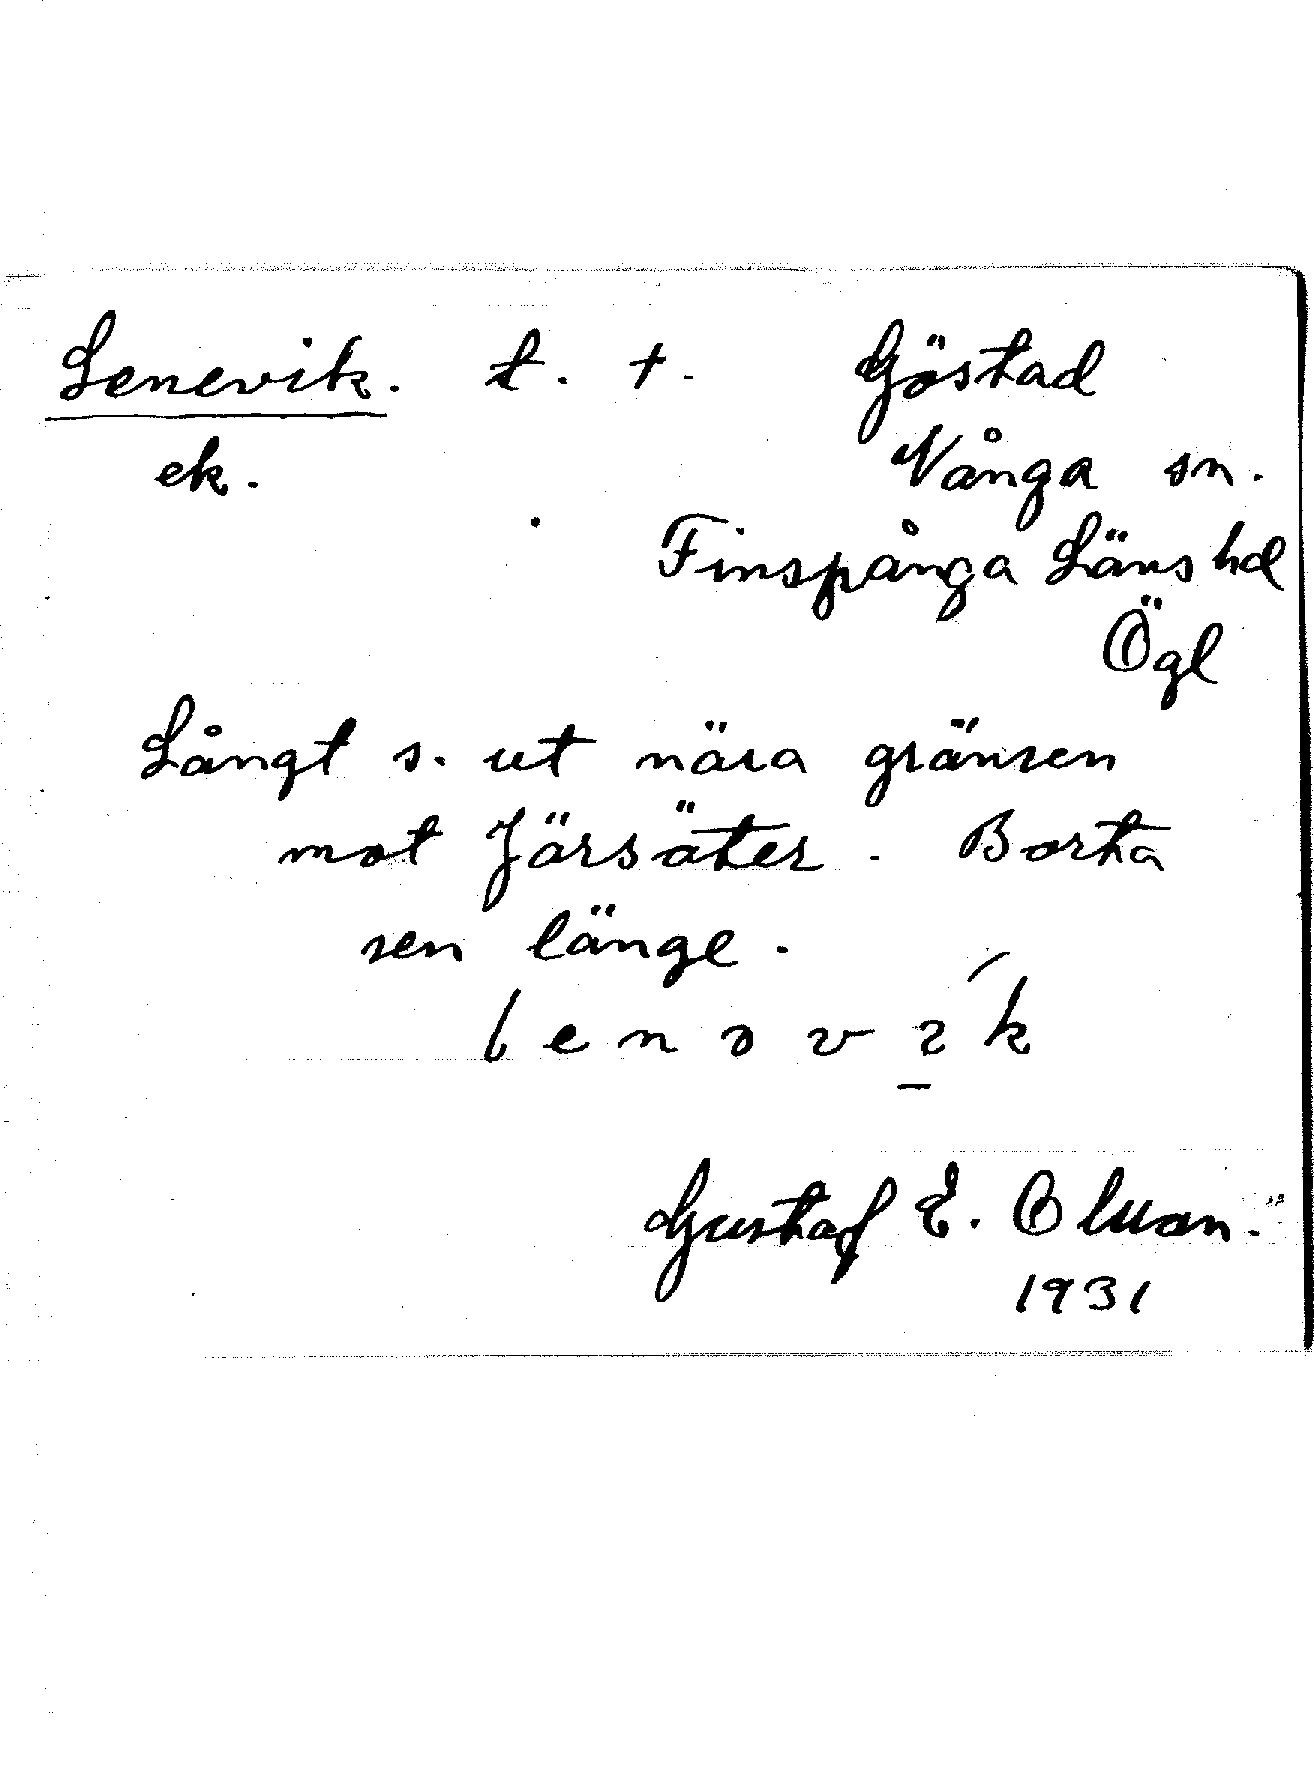 Lenevik. t. +. Göstad
ek. Vånga sn.
Finspånga Läns hd
Ögl
Långt s. ut nära gränsen
mot Järsäter. Borta
sen länge.
Gustaf E.
1931